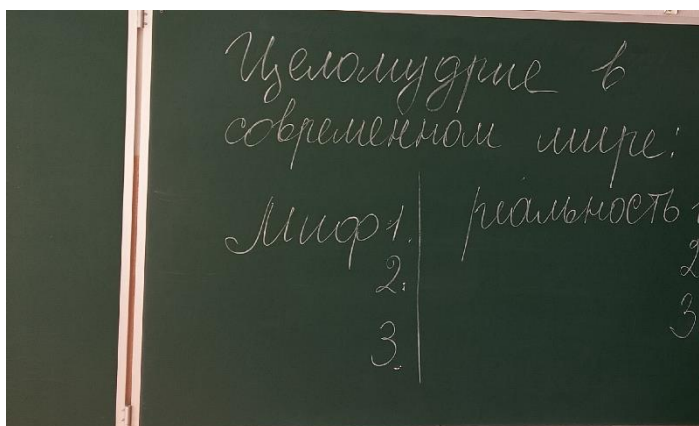 Целомудрие в
современном мире:
Миф 1. реальность 1
2. 2
3. 3